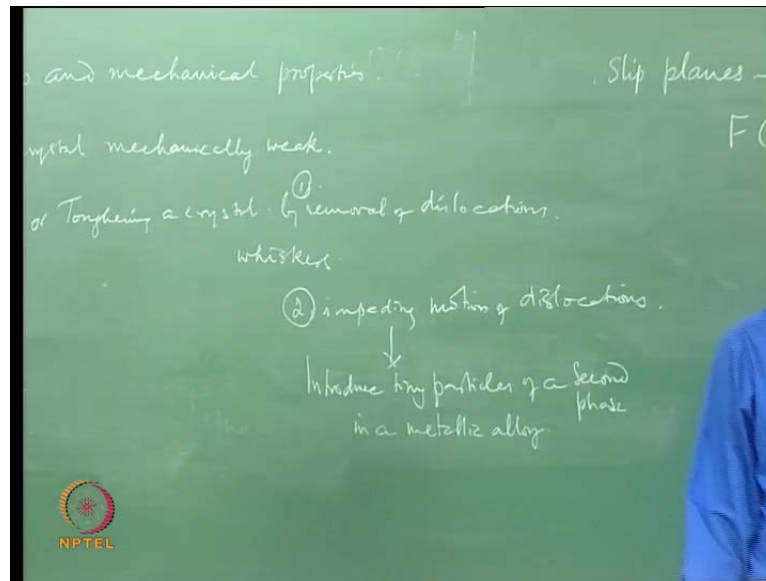 and mechanical properties.
Slip planes -
crystal mechanically weak.
or Toughening a crystal. by ① removal of dislocations.
whisker.
② impeding motion of dislocations.
Introduce tiny particles of a second
phase
in a metallic alloy.
NPTEL